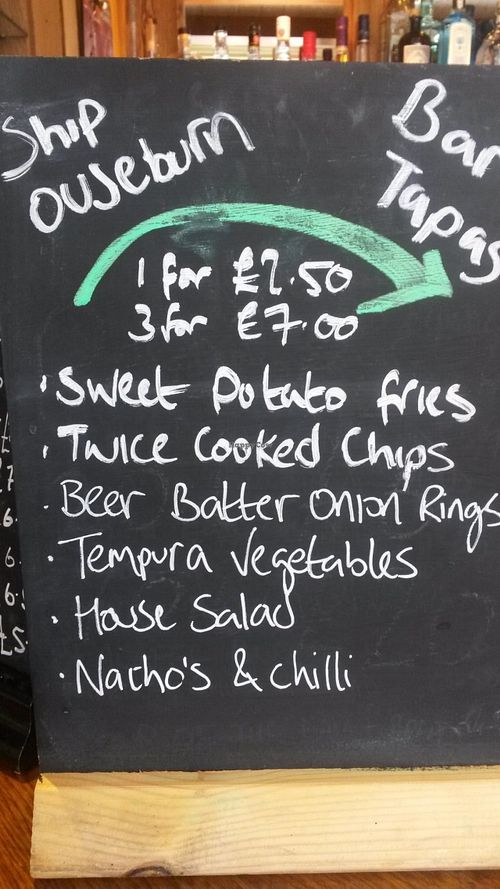 Ship
Ouseburn
Bar
Tapas
1 for £2.50
3 for £7.00
· Sweet Potato fries
· Twice Cooked Chips
· Beer Batter Onion Rings
· Tempura Vegetables
· House Salad
· Nacho's & chilli